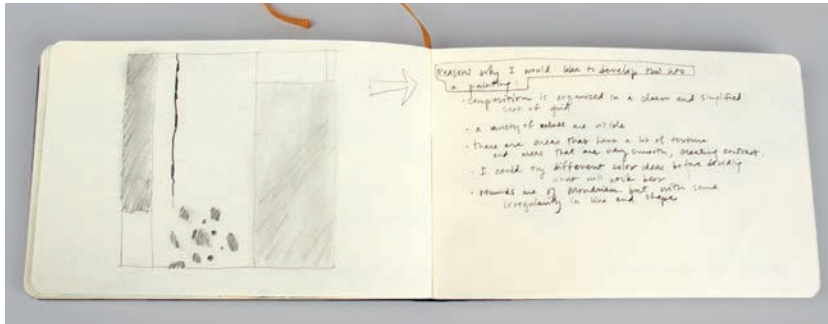 Reasons why I would like to develop this into
a painting
• Composition is organized in a clean and simplified
sort of grid
• a variety of values are visible
• there are areas that have a lot of texture
and areas that are very smooth, creating contrast.
• I could try different color ideas before deciding
what will work best
• reminds me of Mondrian but with some
irregularity in line and shape